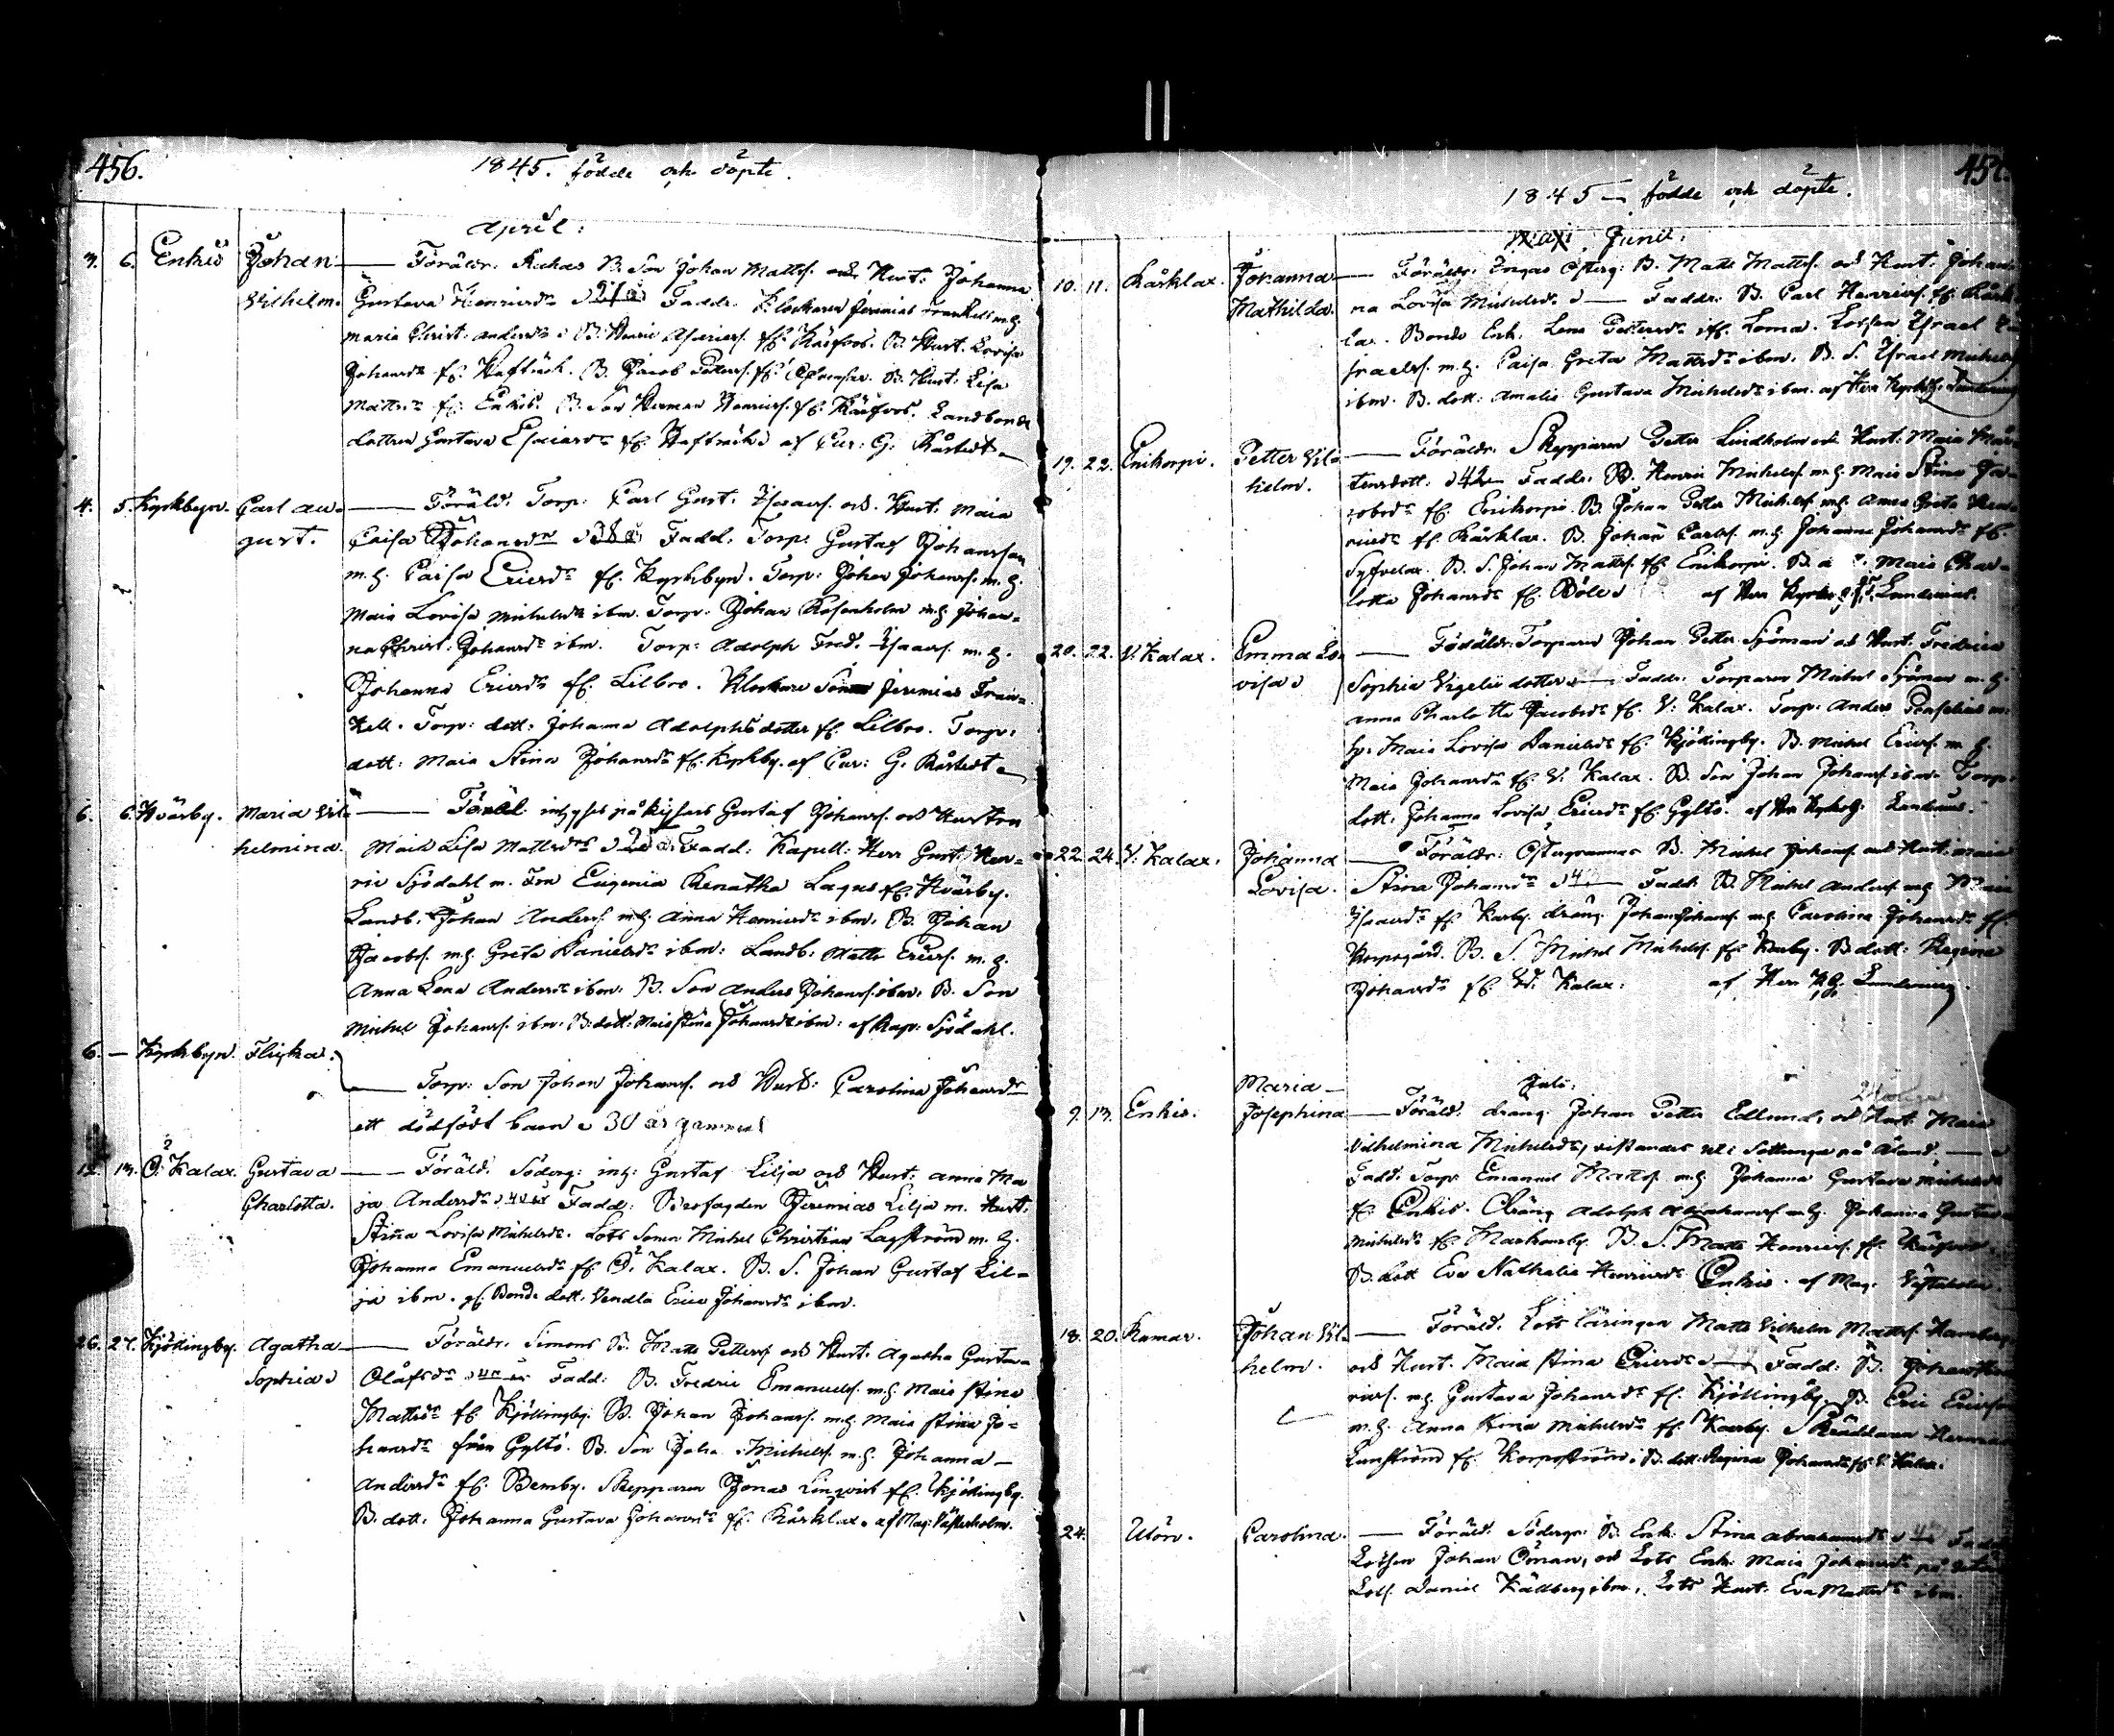 456.
1845. födde och döpte.
April:
3. 6. Enkis Johan Vilhelm.
Föräldr. B. Son Johan Mattss. och Hust. Johanna
Gustava Henricsdr Faddr. Klockaren Jeremias Frankell m.h.
Maria Christ. Andersdr B. Henric fr. Käifvos. B. Hust. Lovisa
Johansdr fr. B. Jacob Petterss. fr. B. Hust. Lisa
Mattsdr fr. Enkis. B. Son Herman Henricss. fr. Käifvos. Landbonde
dottren Gustava Esaiasdr fr. af Cur: G. Råstedt
4. 5. Kyrkbyn. Carl August.
Föräld. Torp: Carl Gust. Isaacss. och Hust. Maia
Caisa Johansdr 38 Fadd. Torp: Gustaf Johansson
m.h. Caisa Ericsdr fr. Kyrkbyn. Torp: Johan Johanss. m.h.
Maia Lovisa Michelsdr ibm. Torp: Johan Rosenholm m.h. Johan-
na Christ. Johansdr ibm. Torp: Adolph Fred. Isaacss. m.h.
Johanna Ericsdr fr. Lilbro. Klockare Sonen Jeremias Fran-
kell. Torp: dott: Johanna Adolphsdotter fr. Lilbro. Torp:
dott: Maia Stina Johansdr fr. Kyrkby. af Cur: G. Råstedt
6. 6. Hvärby. Maria Vilhelmina.
Föräl. inhyses på Gustaf Johanss. och Hustru
Maia Lisa Mattsdr Fadd: Kapell: Herr Gust: Hen-
ric Sjödahl m. Fru Eugenia Renatha Lagus fr. Hvärby.
Landb. Johan Anderss. m.h. Anna Henricsdr ibm. B. Johan
Jacobss. m.h. Greta Danielsdr ibm: Landb: Matts Ericss. m.h.
Anna Lena Andersdr ibm: B. Son Anders Johanss. ibm: B. Son
Michel Johanss. ibm: B: dott: Maia Stina Johansdr ibm: af Kap: Sjödahl.
6. — Kyrkbyn. Flicka.
Torp: Son Johan Johanss. och Hust: Carolina Johansdr
ett dödfödt barn 30 år gammal
12. 13. Ö. Kalax. Gustava Charlotta.
Föräld. Söderg: inh: Gustaf Lilja och Hust: Anna Ma
ja Andersdr Fadd: Brofogden Jeremias Lilja m. Hust.
Stina Lovisa Michelsdr. Lots Sonen Michel Christian Lagström m.h.
Johanna Emanuelsdr fr. Ö. Kalax. B. S. Johan Gustaf Lil-
ja ibm. Bonde dott. Vendla Erica Johansdr ibm.
26. 27. Kjöllingby. Agatha Sophia
Föräldr. Simons B. Matts Petterss och Hust. Agatha Gustava
Olåfsdr Fadd: B. Fredric Emanuelss. m.h. Maia Stina
Mattsdr fr. Kjöllingby. B. Johan Johanss. m.h. Maia Stina Jo-
hansdr från Gyltö. B. Son Joha. Michelss. m.h. Johanna
Andersdr fr. Bemby. Skepparen Jonas Linqvist fr. Kjöllingby.
B. dott. Johanna Gustava Johansdr fr. Kårklax. af Mag. Västerholm.
1845 födde och döpte.
Maji Junii.
10. 11. Kårklax. Johanna Mathilda.
Föräldr. Ingas Österg: B. Matts Mattss. och Hust. Johan-
na Lovisa Michelsdr Faddr. B. Carl Henricss. fr. Kårk
lax. Bonde Enk. Lena Pettersdr fr. Loma. Lotsen Israel I-
sraelss. m.h. Caisa Greta Mattsdr ibm. B. S. Israel Michels
ibm. B. dott: Amalia Gustava Michelsdr ibm. af Herr Kyrkoh.
19. 22. Enikorpi. Petter Vilhelm.
Föräldr. Skepparen Petter Lindholm och Hust. Maia Mår-
tensdott: 42 Faddr. B. Henric Michelss. m.h. Maia Stina Ja-
cobsdr fr. Enikorpi. B. Johan Petter Michelss. m.h. Anna Greta Hen-
ricsdr fr. Kårklax. B. Johan Carlss. m.h. Johanna Johansdr fr.
Syfvelax. B. S. Johan Mattss. fr. Enikorpi. B. d. Maia Char-
lotta Johansdr fr. Böle af Herr Kyrkoh.
20. 22. V. Kalax. Emma Lovisa
Föräldr. Torparen Johan Petter Sjöman och Hust. Fredrica
Sophia Vigelii dotter Faddr. Torparen Michel Sjöman m.h.
Anna Charlotta Jacobsdr fr. V. Kalax. Torp: Anders m.
h. Maia Lovisa Danielsdr fr. Kjöllingby. B. Michel Ericss. m.h.
Maia Johansdr fr. V. Kalax. B. Son Johan Johanss. ibm. Torp.
dott. Johanna Lovisa Ericsdr fr. Gyltö. af Herr Kyrkoh.
22. 24. V. Kalax. Johanna Lovisa.
Föräldr: Östergrannas B. Michel Johanss. och Hust. Maia
Stina Johansdr Fadd. B. Michel Anderss. m.h. Maia
Isaacsdr fr. Karby. dräng Johan Johanss. m.h. Carolina Johansdr fr.
Korpogård. B. S. Michel Michelss. fr. Karby. B. dott: Regina
Johansdr fr. V. Kalax: af Herr
Juli:
9. 13. Enkis. Maria Josephina
Föräld. dräng Johan Petter Edlund och Hust. Maia
Vilhelmina Michelsdr, vistandes uti Sottunga på Åland.
Fadd. Torp. Emanuel Mattss. m.h. Johanna Gustava Michelsdr
fr. Enkis. Dräng Adolph Abrahamss. m.h. Johanna Gustava
Michelsdr fr. B. S. Matts Henricss. fr. Käifvos.
B. dott Eva Nathalia Henricsdr Enkis. af Mag. Västerholm.
18. 20. Rumar. Johan Vilhelm.
Föräld. Lots läringen Matts Vilhelm Mattss.
och Hust. Maia Stina Ericsdr Fadd: B. Johan Hen-
ricss. m.h. Gustava Johansdr fr. Kjöllingby. B. Eric Ericsson
m.h. Anna Stina Michelsdr fr. Karby. Skräddaren Herman
Lunström fr. Korpoström. B. dott: Regina Johansdr fr. V. Kalax.
24. Utön. Carolina.
Föräld. Södergr: B. Enk: Stina Abrahamsdr Fadd
Lotsen Johan Öman, och Lots Enk. Maia Johansdr på Utön
Lots. Daniel Källberg ibm. Lots Hust. Eva Mattsdr ibm.